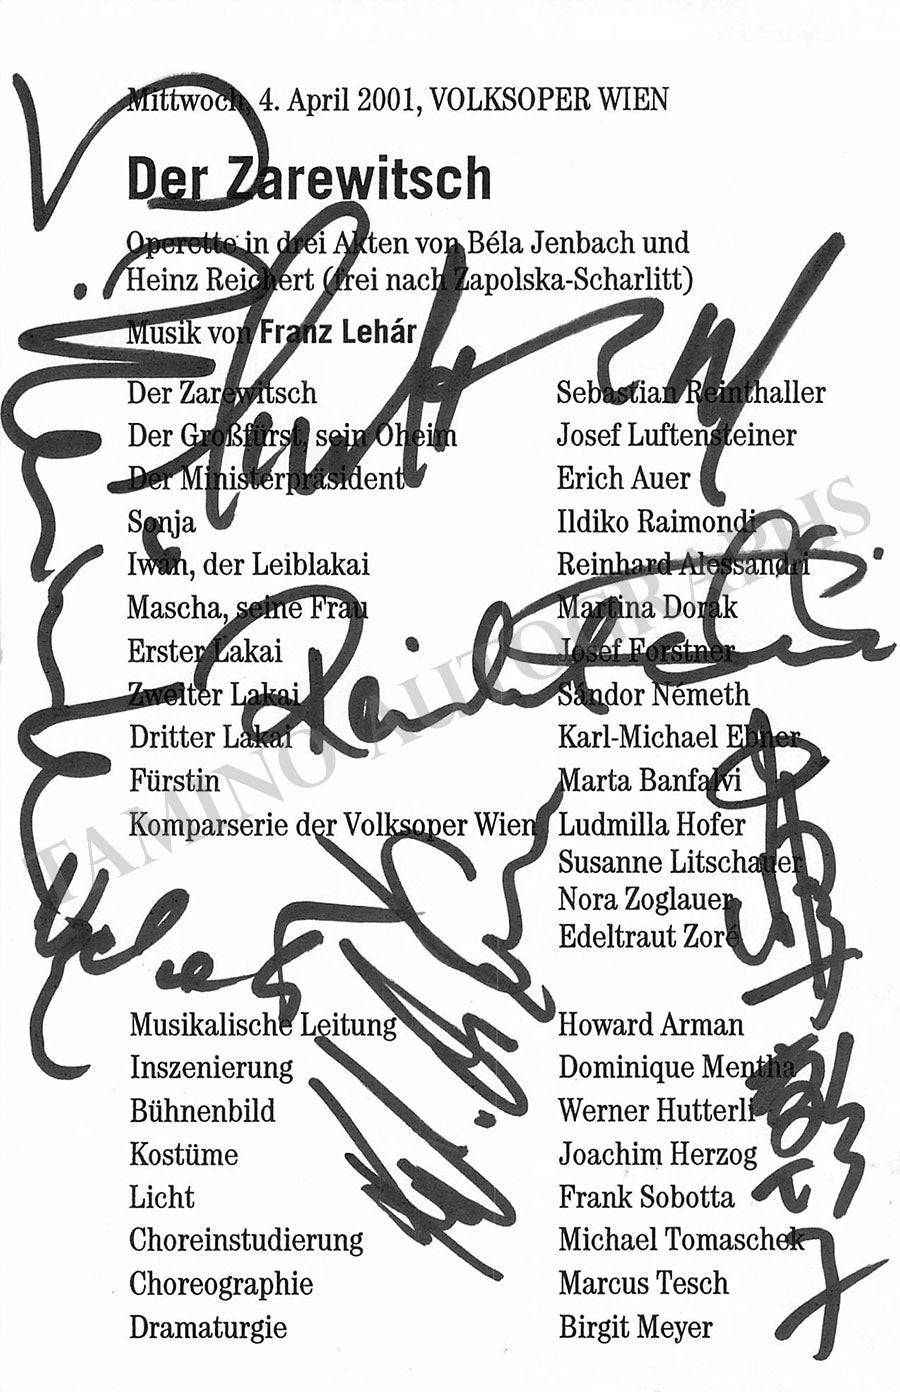 Mittwoch, 4. April 2001, VOLKSOPER WIEN
Der Zarewitsch
Operette in drei Akten von Béla Jenbach und
Heinz Reichert (frei nach Zapolska-Scharlitt)
Musik von Franz Lehár
Der Zarewitsch Sebastian Reinthaller
Der Großfürst, sein Oheim Josef Luftensteiner
Der Ministerpräsident Erich Auer
Sonja Ildiko Raimondi
Iwan, der Leiblakai Reinhard Alessandri
Mascha, seine Frau Martina Dorak
Erster Lakai Josef Forstner
Zweiter Lakai Sándor Németh
Dritter Lakai Karl-Michael Ebner
Fürstin Marta Banfalvi
Komparserie der Volksoper Wien Ludmilla Hofer
Susanne Litschauer
Nora Zoglauer
Edeltraut Zoré
Musikalische Leitung Howard Arman
Inszenierung Dominique Mentha
Bühnenbild Werner Hutterli
Kostüme Joachim Herzog
Licht Frank Sobotta
Choreinstudierung Michael Tomaschek
Choreographie Marcus Tesch
Dramaturgie Birgit Meyer
TAMINO AUTOGRAPHS